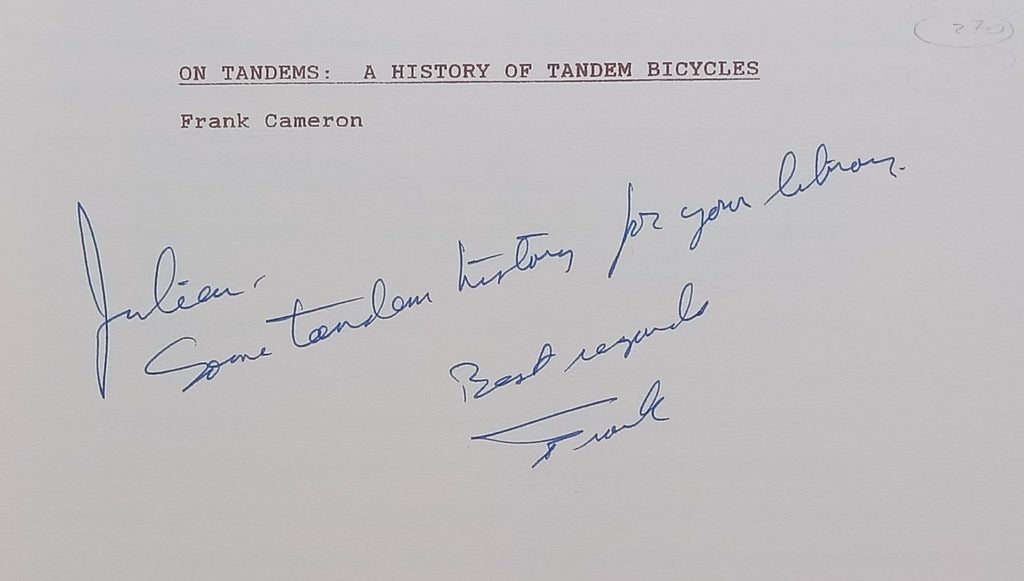 270
ON TANDEMS: A HISTORY OF TANDEM BICYCLES
Frank Cameron
Julian,
Some tandem history for your library.
Best regards
Frank